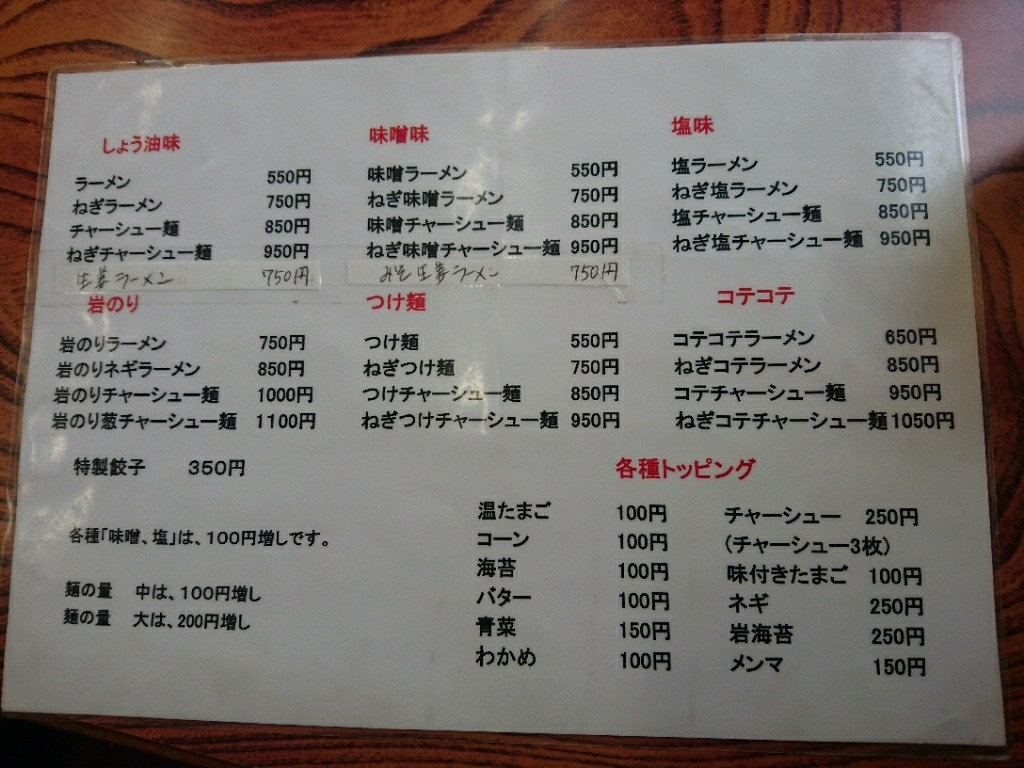 しょう油味
ラーメン 550円
ねぎラーメン 750円
チャーシュー麺 850円
ねぎチャーシュー麺 950円
生姜ラーメン 750円
味噌味
味噌ラーメン 550円
ねぎ味噌ラーメン 750円
味噌チャーシュー麺 850円
ねぎ味噌チャーシュー麺 950円
みそ生姜ラーメン 750円
塩味
塩ラーメン 550円
ねぎ塩ラーメン 750円
塩チャーシュー麺 850円
ねぎ塩チャーシュー麺 950円
岩のり
岩のりラーメン 750円
岩のりネギラーメン 850円
岩のりチャーシュー麺 1000円
岩のり葱チャーシュー麺 1100円
つけ麺
つけ麺 550円
ねぎつけ麺 750円
つけチャーシュー麺 850円
ねぎつけチャーシュー麺 950円
コテコテ
コテコテラーメン 650円
ねぎコテラーメン 850円
コテチャーシュー麺 950円
ねぎコテチャーシュー麺 1050円
特製餃子 350円
各種「味噌、塩」は、100円増しです。
麺の量 中は、100円増し
麺の量 大は、200円増し
各種トッピング
温たまご 100円
コーン 100円
海苔 100円
バター 100円
青菜 150円
わかめ 100円
チャーシュー 250円
(チャーシュー3枚)
味付きたまご 100円
ネギ 250円
岩海苔 250円
メンマ 150円